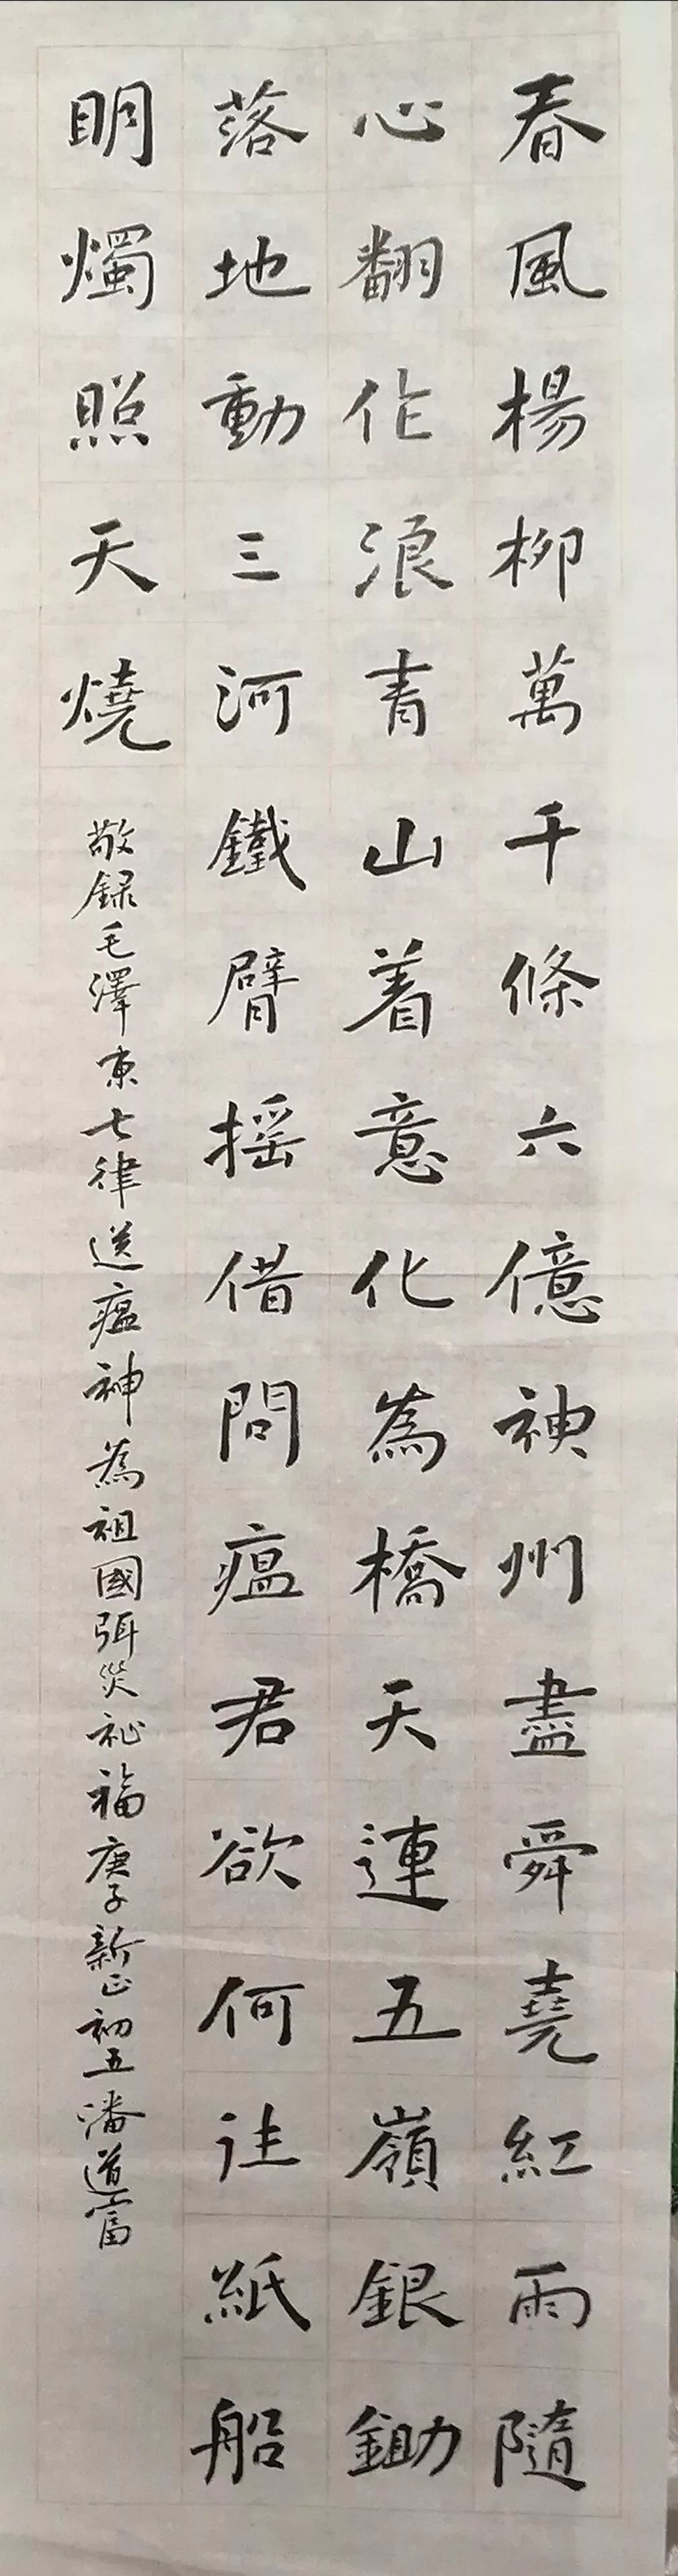 春風楊柳萬千條六億神州盡舜堯紅雨隨
心翻作浪青山着意化為橋天連五嶺銀鋤
落地動三河鐵臂搖借問瘟君欲何往紙船
明燭照天燒
敬録毛澤東七律送瘟神為祖國弭災祉福庚子新正初五潘道富